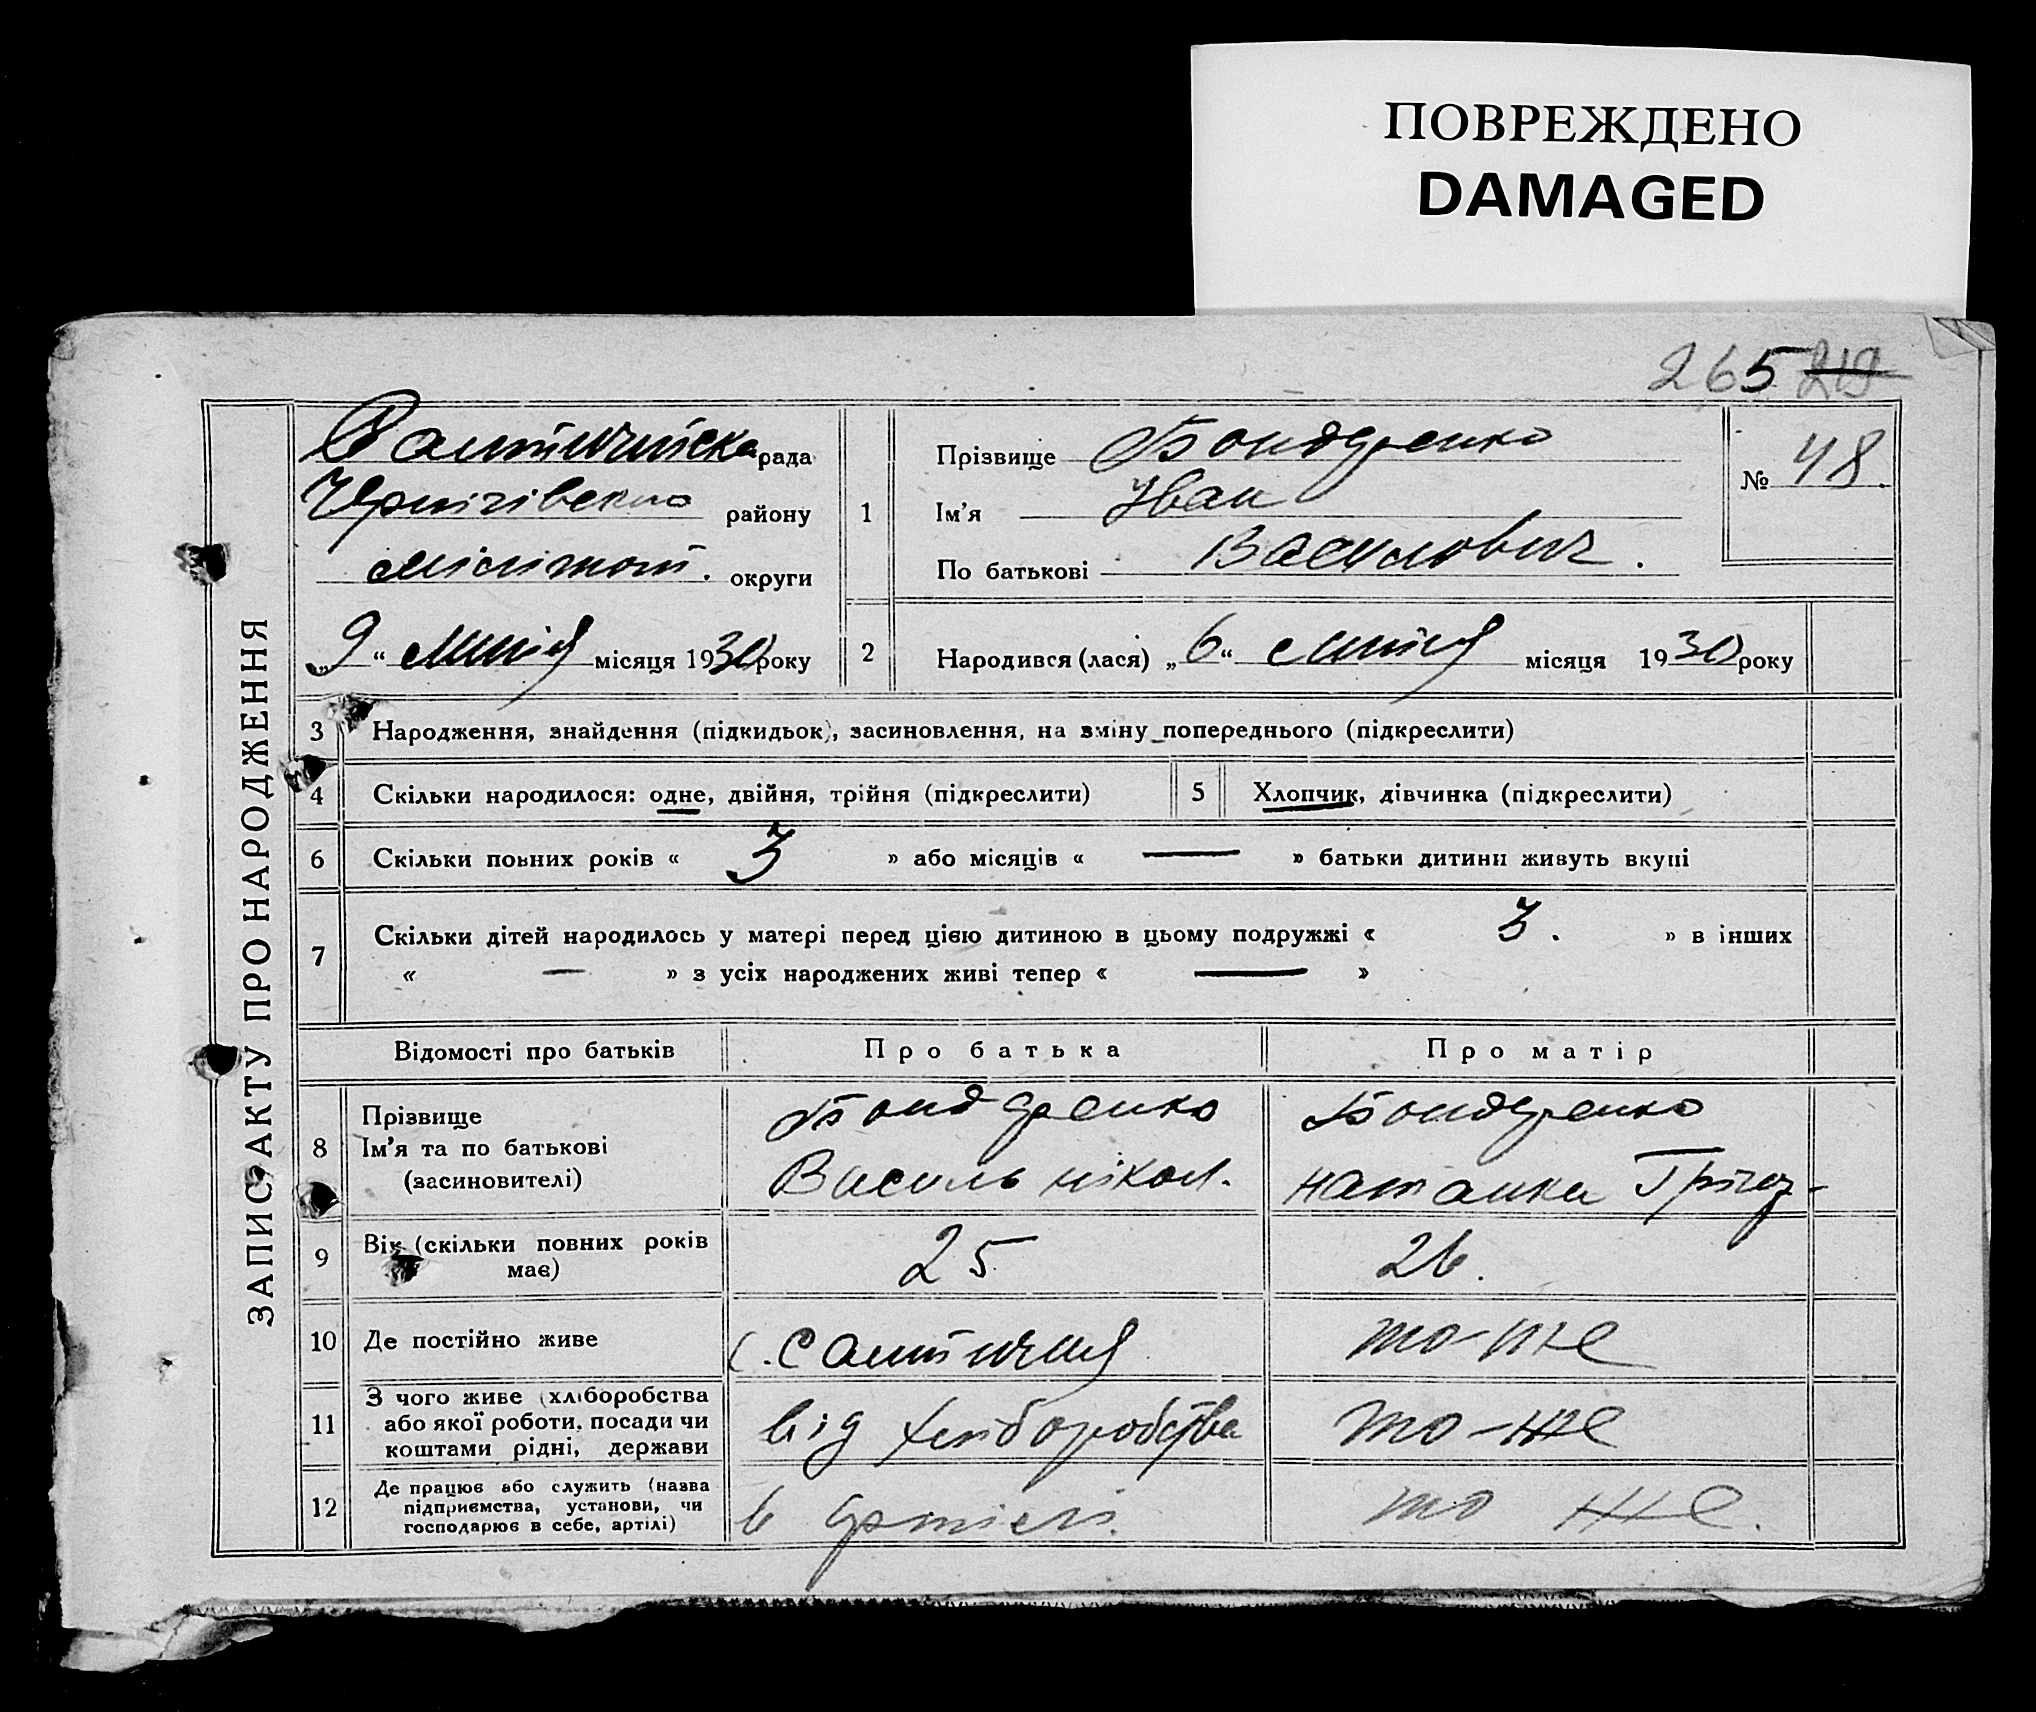 ПОВРЕЖДЕНО
DAMAGED
265 219
ЗАПИС АКТУ ПРО НАРОДЖЕННЯ
рада
району
округи
„9“ місяця 1930 року
1
Прізвище Бондаренко
Ім’я Іван
По батькові Василович.
№ 48.
2
Народився (лася) „6“ місяця 1930 року
3 Народження, знайдення (підкидьок), засиновлення, на зміну попереднього (підкреслити)
4 Скільки народилося: одне, двійня, трійня (підкреслити)
5 Хлопчик, дівчинка (підкреслити)
6 Скільки повних років « 3 » або місяців « — » батьки дитини живуть вкупі
7 Скільки дітей народилось у матері перед цією дитиною в цьому подружжі « 3. » в інших
« — » з усіх народжених живі тепер « — »
Відомості про батьків Про батька Про матір
8 Прізвище
Ім’я та по батькові
(засиновителі)
Бондаренко
Василь нікол.
Бондаренко
Наталка Григ-
9 Вік (скільки повних років
має)
25
26.
10 Де постійно живе
то-же
11 З чого живе (хліборобства
або якої роботи, посади чи
коштами рідні, держави
від хліборобства
то-же
12 Де працює або служить (назва
підприємства, установи, чи
господарює в себе, артілі)
в артілі.
то же.